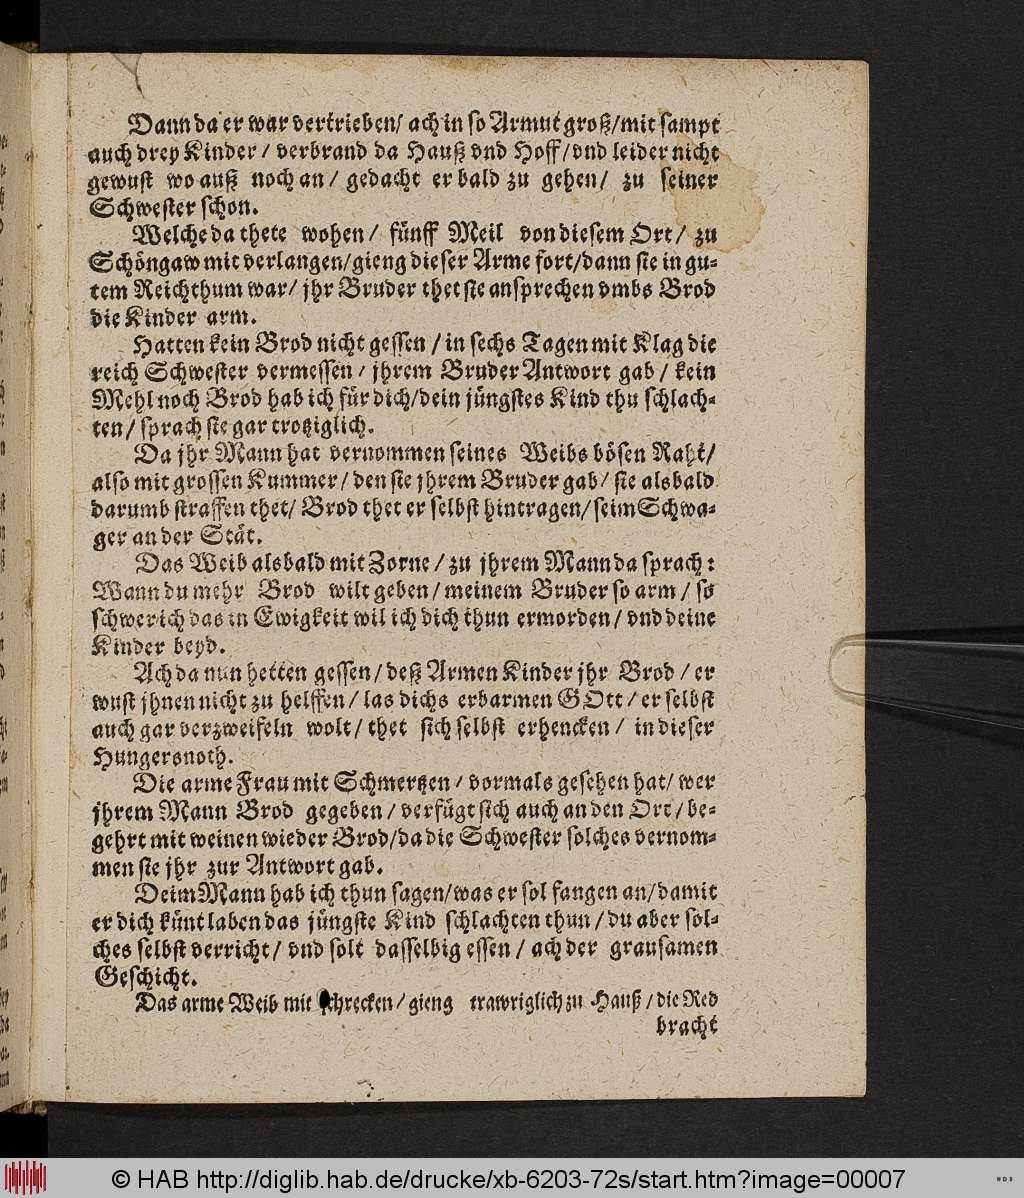 Dann da er war vertrieben/ ach in so Armut groß/mit sampt
auch drey Kinder / verbrand da Hauß vnd Hoff/vnd leider nicht
gewust wo auß noch an / gedacht er bald zu gehen/ zu seiner
Schwester schon.
Welche da thete wohen / fünff Meil von diesem Ort / zu
Schöngaw mit verlangen/gieng dieser Arme fort/dann sie in gu-
tem Reichthum war/ jhr Bruder thet sie ansprechen vmbs Brod
die Kinder arm.
Hatten kein Brod nicht gessen / in sechs Tagen mit Klag die
reich Schwester vermessen / jhrem Bruder Antwort gab / kein
Mehl noch Brod hab ich für dich/dein jüngstes Kind thu schlach-
ten / sprach sie gar trotziglich.
Da jhr Mann hat vernommen seines Weibs bösen Raht/
also mit grossen Kummer / den sie jhrem Bruder gab/ sie alsbald
darumb straffen thet/ Brod thet er selbst hintragen/ seim Schwa-
ger an der Stät.
Das Weib alsbald mit Zorne / zu jhrem Mann da sprach:
Wann du mehr Brod wilt geben / meinem Bruder so arm / so
schwer ich das in Ewigkeit wil ich dich thun ermorden / vnd deine
Kinder beyd.
Ach da nun hetten gessen / deß Armen Kinder jhr Brod / er
wust jhnen nicht zu helffen / las dichs erbarmen GOtt / er selbst
auch gar verzweifeln wolt / thet sich selbst erhencken / in dieser
Hungersnoth.
Die arme Frau mit Schmertzen / vormals gesehen hat/ wer
jhrem Mann Brod gegeben / verfügt sich auch an den Ort / be-
gehrt mit weinen wieder Brod/da die Schwester solches vernom-
men sie jhr zur Antwort gab.
Deim Mann hab ich thun sagen/was er sol fangen an/damit
er dich künt laben das jüngste Kind schlachten thun / du aber sol-
ches selbst verricht / vnd solt dasselbig essen / ach der grausamen
Geschicht.
Das arme Weib mit schrecken / gieng trawriglich zu Hauß / die Red
bracht
© HAB http://diglib.hab.de/drucke/xb-6203-72s/start.htm?image=00007